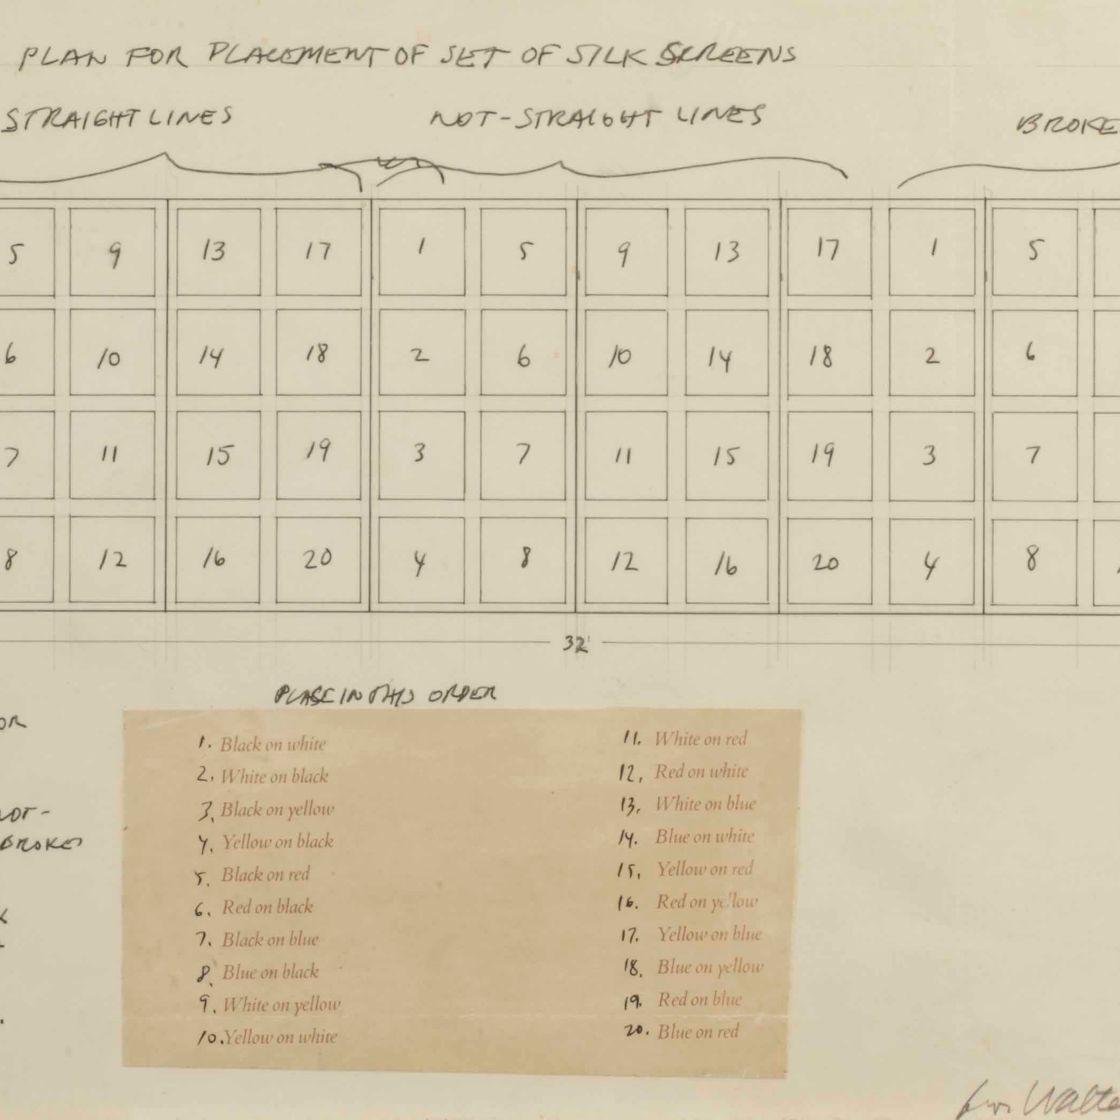 PLAN FOR PLACEMENT OF SET OF SILK SCREENS
STRAIGHT LINES NOT-STRAIGHT LINES BROKE
5 9 13 17 1 5 9 13 17 1 5
6 10 14 18 2 6 10 14 18 2 6
7 11 15 19 3 7 11 15 19 3 7
8 12 16 20 4 8 12 16 20 4 8
32'
PLACE IN THIS ORDER
OR
NOT-
BROKEN
1. Black on white
2. White on black
3. Black on yellow
4. Yellow on black
5. Black on red
6. Red on black
7. Black on blue
8. Blue on black
9. White on yellow
10. Yellow on white
11. White on red
12. Red on white
13. White on blue
14. Blue on white
15. Yellow on red
16. Red on yellow
17. Yellow on blue
18. Blue on yellow
19. Red on blue
20. Blue on red
for Walte